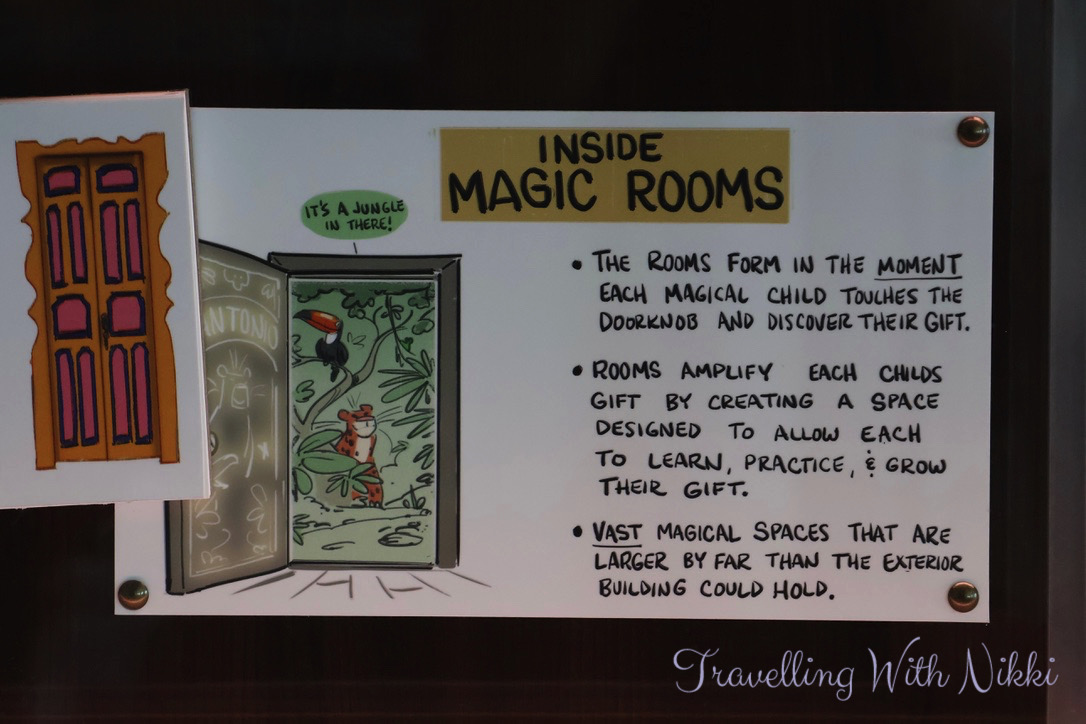 INSIDE
MAGIC ROOMS
IT'S A JUNGLE
IN THERE!
ANTONIO
• THE ROOMS FORM IN THE MOMENT
EACH MAGICAL CHILD TOUCHES THE
DOORKNOB AND DISCOVER THEIR GIFT.
• ROOMS AMPLIFY EACH CHILDS
GIFT BY CREATING A SPACE
DESIGNED TO ALLOW EACH
TO LEARN, PRACTICE, & GROW
THEIR GIFT.
• VAST MAGICAL SPACES THAT ARE
LARGER BY FAR THAN THE EXTERIOR
BUILDING COULD HOLD.
Travelling With Nikki